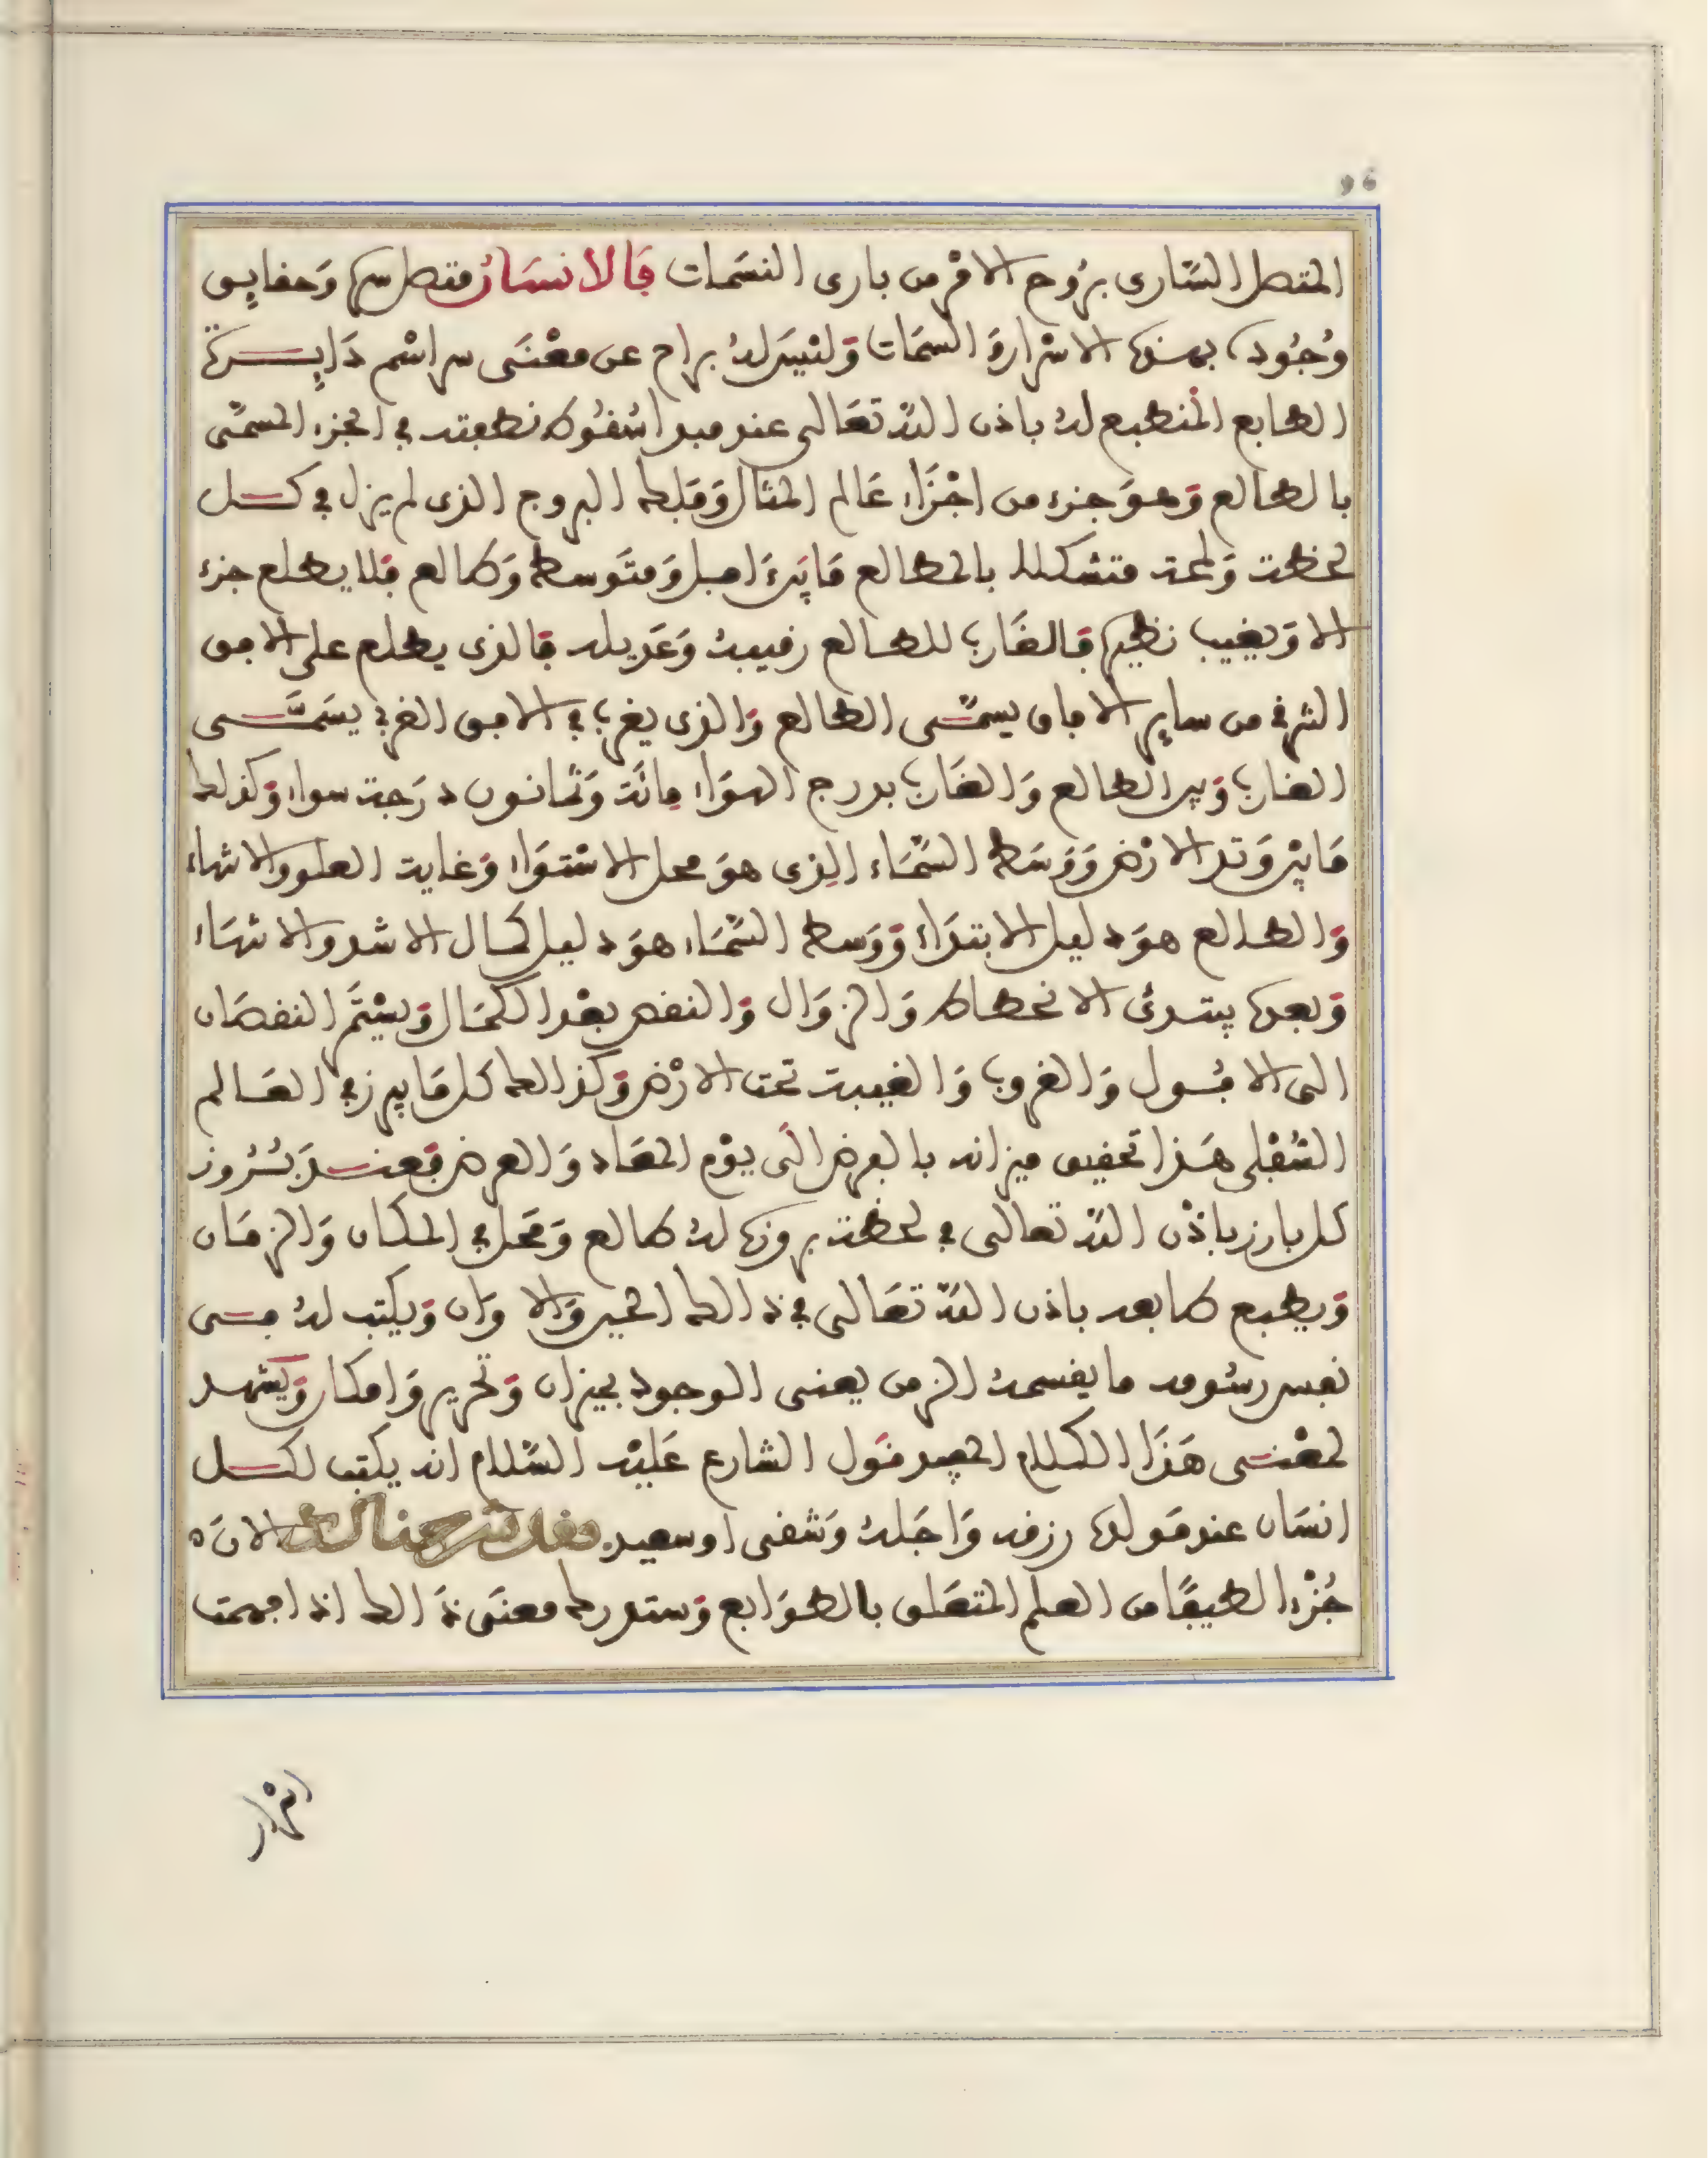 96
المتصل السَّارى بِرُوح الامْر من بارى النسَمات فَالانسَان متصل سره وَحقايق
وُجُوده بهذه الاسْرار وَالسمَات وَليْسَ لهُ براح عن معْنَى سر اسْم دَايِرة
الطابع المُنطبع لهُ باذن اللّه تعَالى عند مبدا سُقُوط نطفته في الجزء المسمّى
بالطالع وَهوَ جزء من اجْزَاء عَالم المثال وَفلك البروج الذى لم يزل في كل
لحظة وَلمحة متشكلا بالمطالع مَا بيْن اصل وَمتَوسط وَطالع فَلا يطلع جزء
الا وَيغيب نظيره فَالغَارب للطالع رقيبهُ وَعَديله فَالذى يطلع على الافق
الشرقي من ساير الافاق يسمّى الطالع وَالذى يغرب في الافق الغربي يسَمَّى
الغارب وَبين الطالع وَالغَارب بدرج السوَاء مِائة وَثمانون درَجة سواء وَكذلك
مَا بيْن وَتد الارْض وَوَسَط السَّمَاء الذى هوَ محل الاسْتوَاء وَغاية العلو والانتهاء
وَالطالع هوَ دليل الابتدَاء وَوَسط السَّمَاء هوَ دليل كمال الاشد والانتهَاء
وَبعده يبتدئ الانحطاط وَالزوَال وَالنقص بعْد الكمَال وَيسْتمَّر النقصَان
الى الافُول وَالغروب وَالغيبة تحت الارْض وَكذالك كل مَا يبرز في العَالم
السُّفْلى هَذا تحقيق ميزانه بالعرض الَى يوْم المعَاد وَالعرض فَعند بُرُوز
كل بارز باذْن اللّه تعالى في لحظة بروزه لهُ طالع وَمَحل في المكان وَالزمَان
وَيطبع طابعه باذن اللّه تعَالى في ذالك الحين وَالاوَان وَيكتب لهُ في
نفس رسُومه ما يقسمهُ الزمن يعنى الوجود بميزان وَتحرير وَامكان وَيشهد
لمعْنى هَذَا الكلام المجيد قوَل الشارع عَليْه السَّلام انه يكتب لكل
انسَان عند مَولده رزقه وَاجَلهُ وَشقى او سعيد فقد شرحنا لك الانَ
جُزْءا لطيفًا من العلم المتعَلق بالطوَابع وَستدرك معنَى ذَالك اذا فهمت